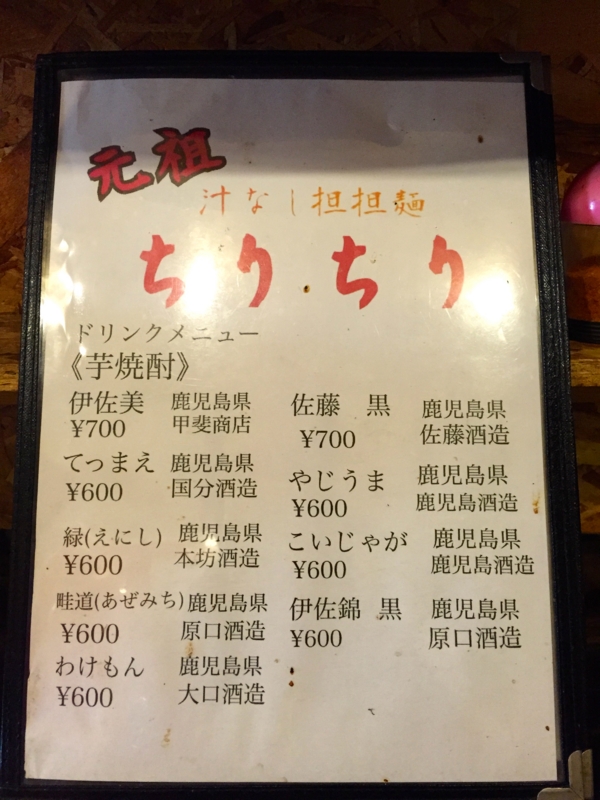 元祖
汁なし担担麺
ちりちり
ドリンクメニュー
《芋焼酎》
伊佐美 鹿児島県
¥700 甲斐商店
てっまえ 鹿児島県
¥600 国分酒造
緑(えにし) 鹿児島県
¥600 本坊酒造
畦道(あぜみち) 鹿児島県
¥600 原口酒造
わけもん 鹿児島県
¥600 大口酒造
佐藤 黒 鹿児島県
¥700 佐藤酒造
やじうま 鹿児島県
¥600 鹿児島酒造
こいじゃが 鹿児島県
¥600 鹿児島酒造
伊佐錦 黒 鹿児島県
¥600 原口酒造